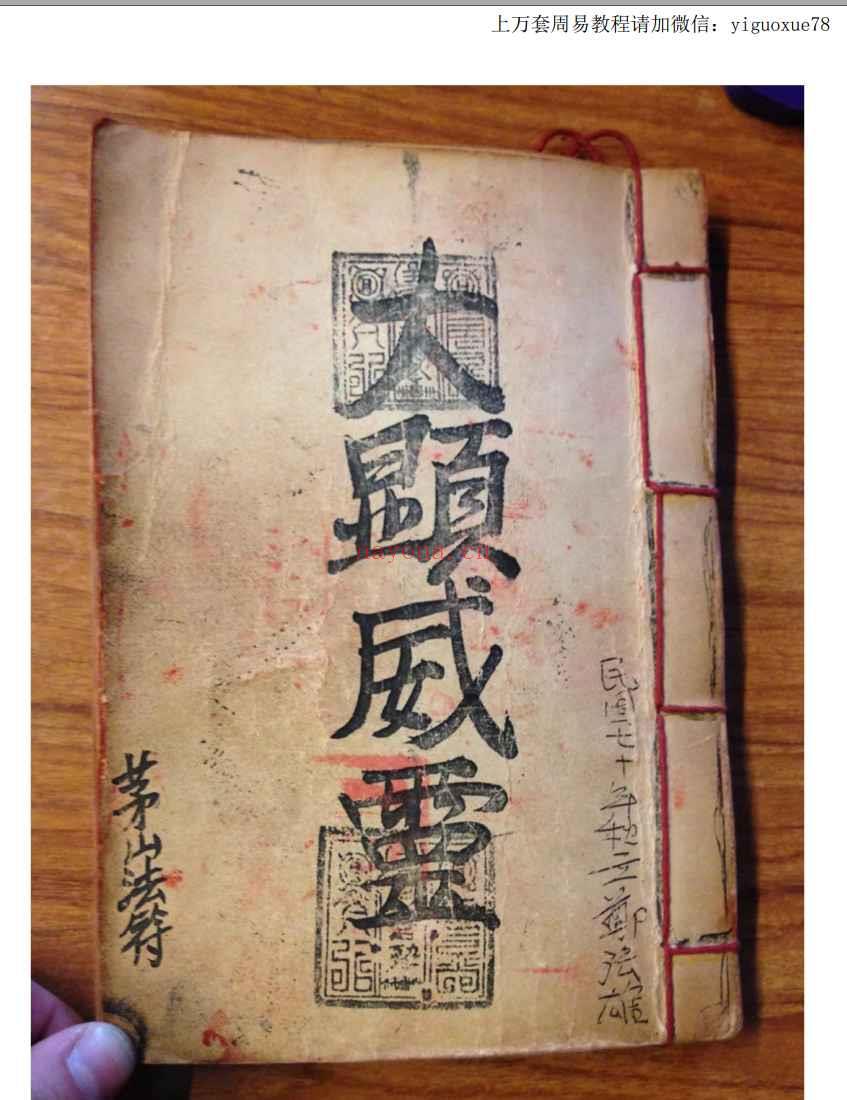 上万套周易教程请加微信：yiguoxue78
民國七十年秋立鄭弦雄
大顯威靈
茅山法符
nayona.cn